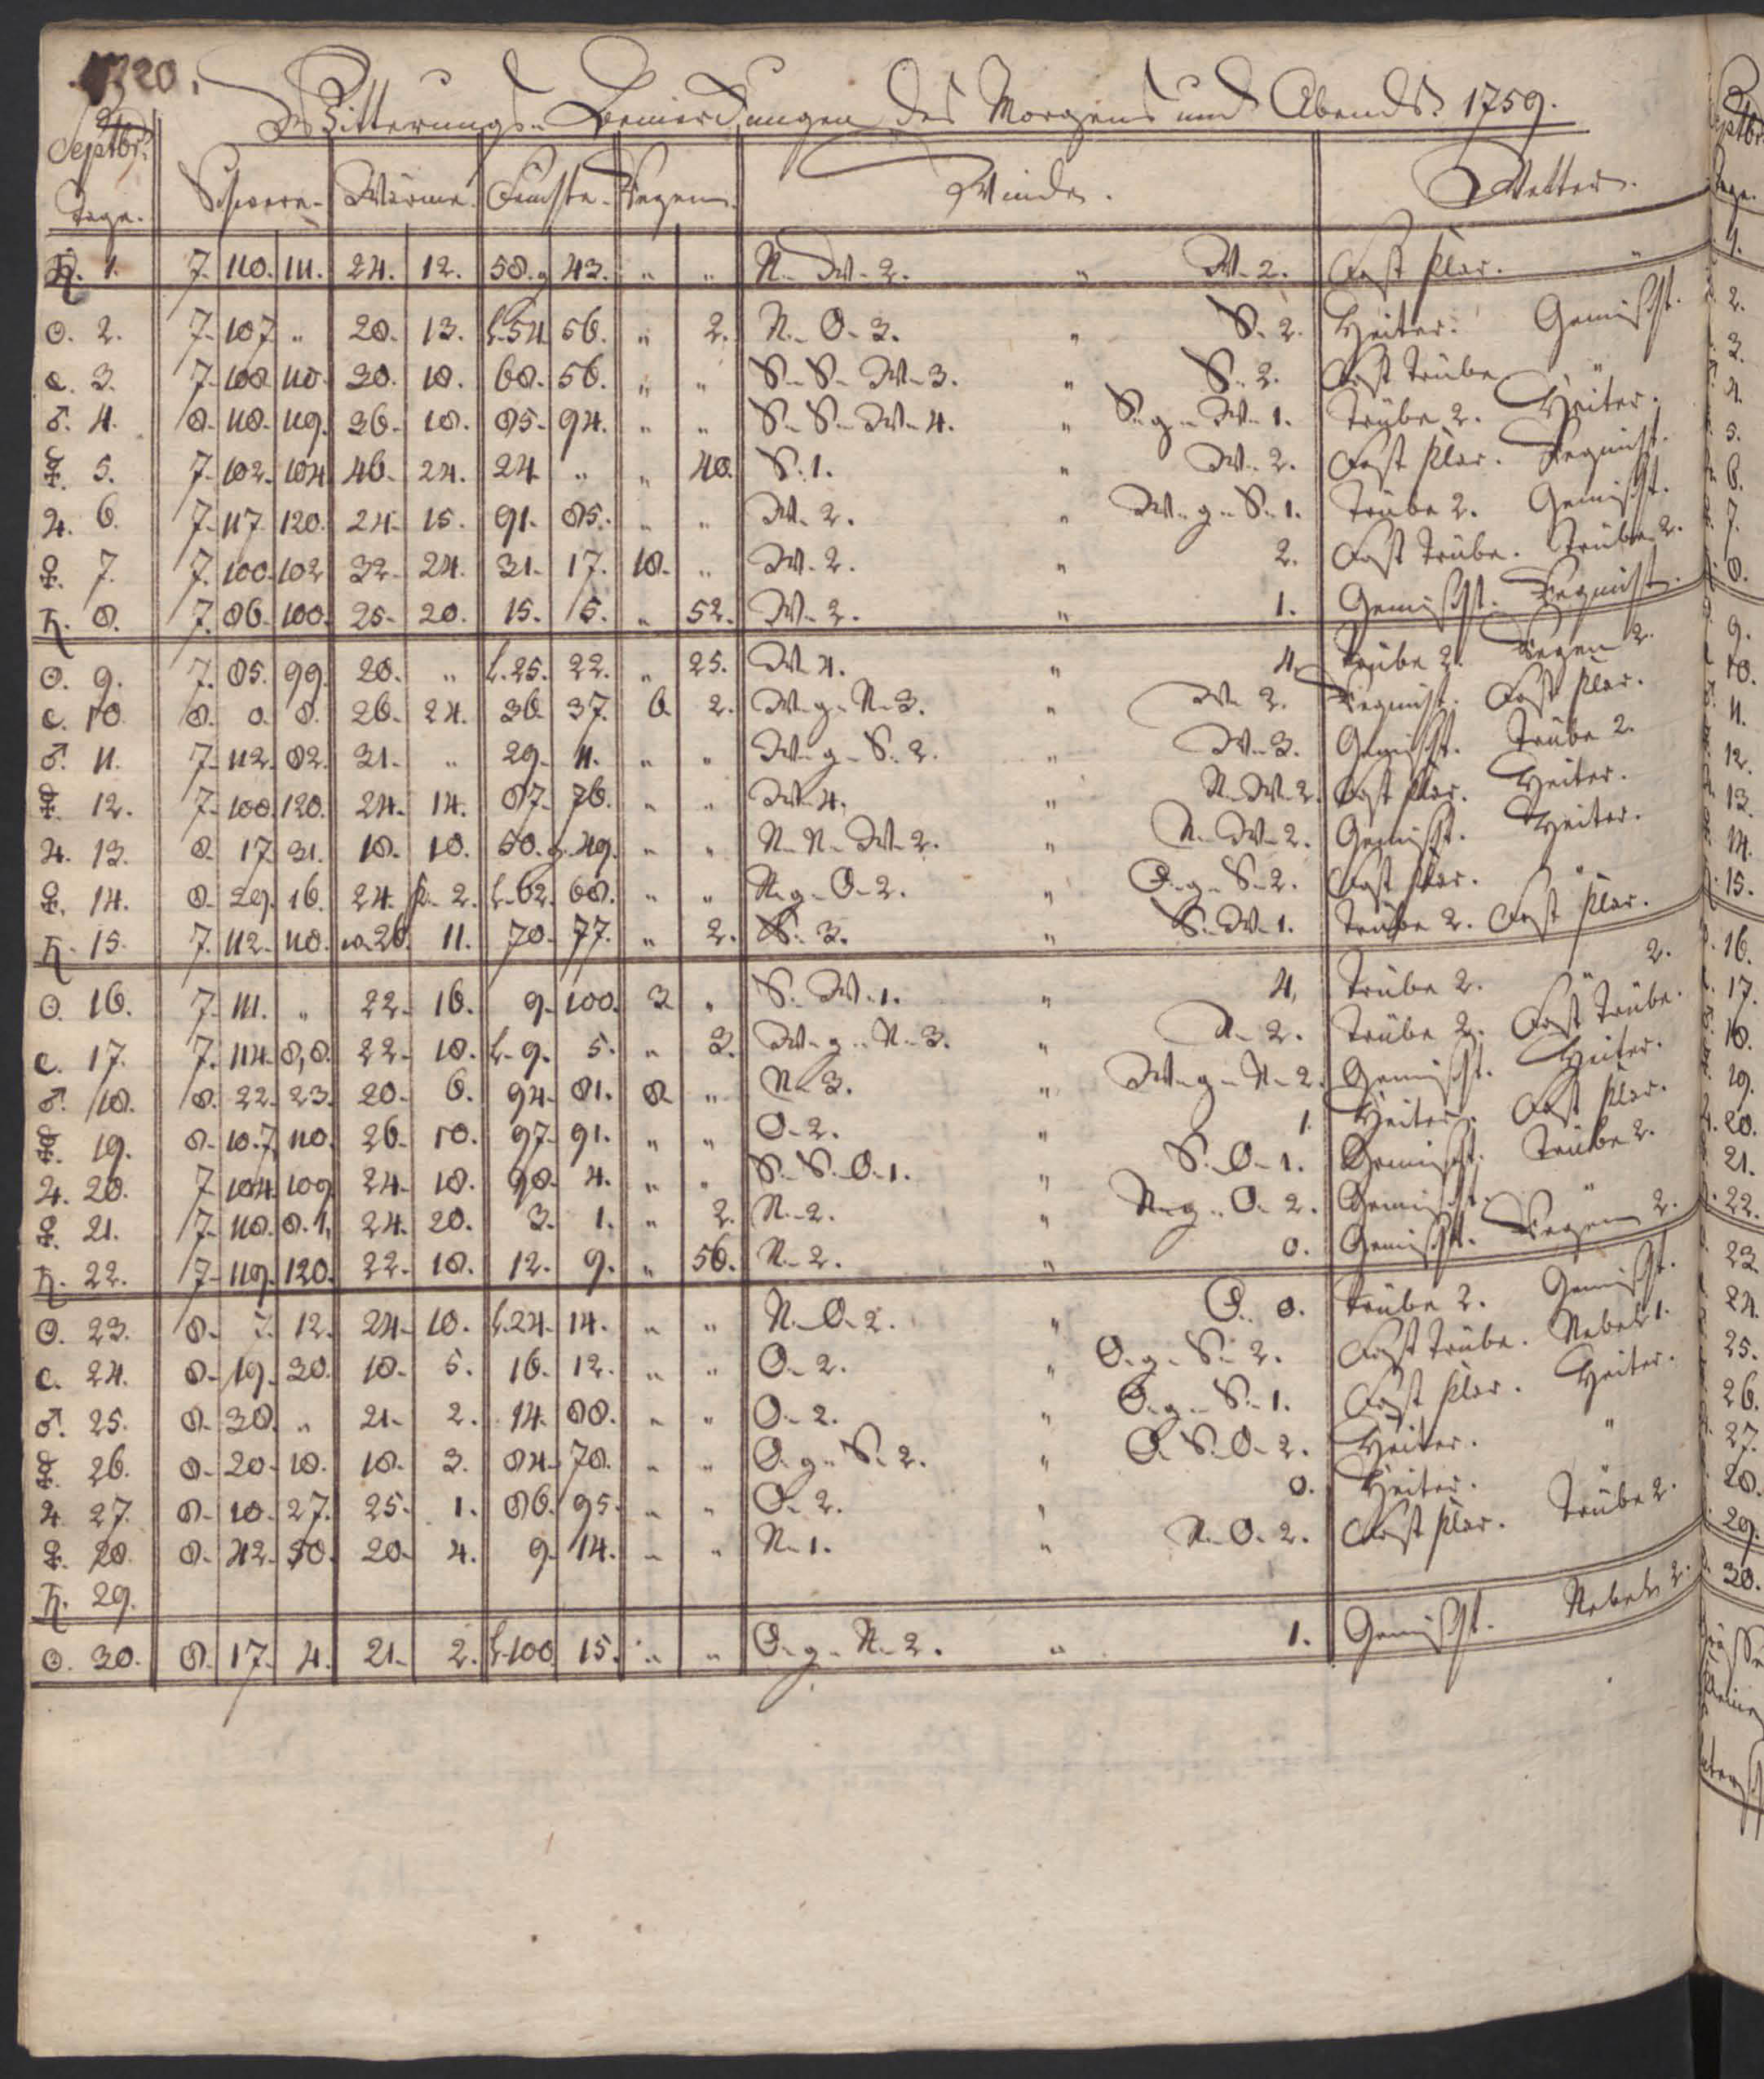 1220.
Witterungs-Bemerckungen des Morgens und Abends. 1759.
Septbr.
Tage. Schwere. Wärme. Feuchte. Regen. Winde. Wetter.
♄. 1. 7. 110. 111. 24. 12. 58. g 43. " " N-W-2. " W-2. Fast klar. "
☉. 2. 7. 107 " 28. 13. L.54 56. " 2. N-O-3. " S-2. Heiter. Gemischt.
☾. 3. 7. 108. 110. 30. 18. 68. 56. " " S-S-W-3. " S-2. Fast trübe "
♂. 4. 8. 118. 119. 36. 18. 85. 94. " " S-S-W-4. " S-g-W-1. Trübe 2. Heiter.
☿. 5. 7. 102. 104 46. 24. 24 " " 48. S.1. " W-2. Fast klar. Regnicht.
♃. 6. 7. 117. 120. 24. 15. 91. 85. " " W-2. " W-g-S-1. Trübe 2. Gemischt.
♀. 7. 7. 100. 102 32. 24. 31. 17. 18. " W-2. " 2. Fast trübe. Trübe 2.
♄. 8. 7. 86. 100. 25. 20. 15. 15. " 52. W-2. " 1. Gemischt. Regnicht.
☉. 9. 7. 85. 99. 20. " L.25. 22. " 25. W-4. " 4. Trübe 2. Regen 2.
☾. 10. 8. 0. 8. 26. 24. 36. 37. 6. 2. W-g-N-3. " W-2. Regnicht. Fast klar.
♂. 11. 7. 112. 82. 31. " 29. 11. " " W-g-S-2. " W-3. Gemischt. Trübe 2.
☿. 12. 7. 108. 120. 24. 14. 87. 76. " " W-4. " N-W-2. Fast klar. Heiter.
♃. 13. 8. 17. 31. 18. 10. 50. g. 49. " " N-N-W-2. " N-W-2. Gemischt. Heiter.
♀. 14. 8. 29. 16. 24. k-2. L-62. 68. " " N-g-O-2. " O-g-S-2. Fast klar. "
♄. 15. 7. 112. 110. 26. 11. 70. 77. " 2. S-3. " S-W-1. Trübe 2. Fast klar.
☉. 16. 7. 111. " 22. 16. 9. 100. 3. " S-W-1. " 4. Trübe 2. " 2.
☾. 17. 7. 114. 8,8. 22. 18. L-9. 5. " 3. W-g-N-3. " N-2. Trübe 2. Fast trübe.
♂. 18. 8. 22. 23. 20. 6. 94. 81. 8. " N-3. " W-g-N-2. Gemischt. Heiter.
☿. 19. 8. 10.7. 110. 26. 10. 97. 91. " " O-2. " 1. Heiter. Fast klar.
♃. 20. 7. 104. 109 24. 18. 98. 4. " " S-S-O-1. " S-O-1. Gemischt. Trübe 2.
♀. 21. 7. 118. 8.1, 24. 20. 3. 1. " 2. N-2. " N-g-O-2. Gemischt. "
♄. 22. 7. 119. 120. 22. 18. 12. 9. " 56. N-2. " 0. Gemischt. Regen 2.
☉. 23. 8. 7. 12. 24. 10. L.24. 14. " " N-O-2. " O. 0. Trübe 2. Gemischt.
☾. 24. 8. 19. 30. 18. 5. 16. 12. " " O-2. " O-g-S-2. Fast trübe. Nebel 1.
♂. 25. 8. 38. " 21. 2. 14. 88. " " O-2. " O-g-S-1. Fast klar. Heiter.
☿. 26. 8. 20. 18. 18. 3. 84. 78. " " O-g-S-2. " O-S-O-2. Heiter. "
♃. 27. 8. 10. 27. 25. 1. 86. 95. " " O-2. " 0. Heiter. "
♀. 28. 8. 42. 50. 20. 4. 9. 14. " " N-1. " N-O-2. Fast klar. Trübe 2.
♄. 29.
☉. 30. 8. 17. 4. 21. 2. L-100 15. " " O-g-N-2. " 1. Gemischt. Nebel 2.